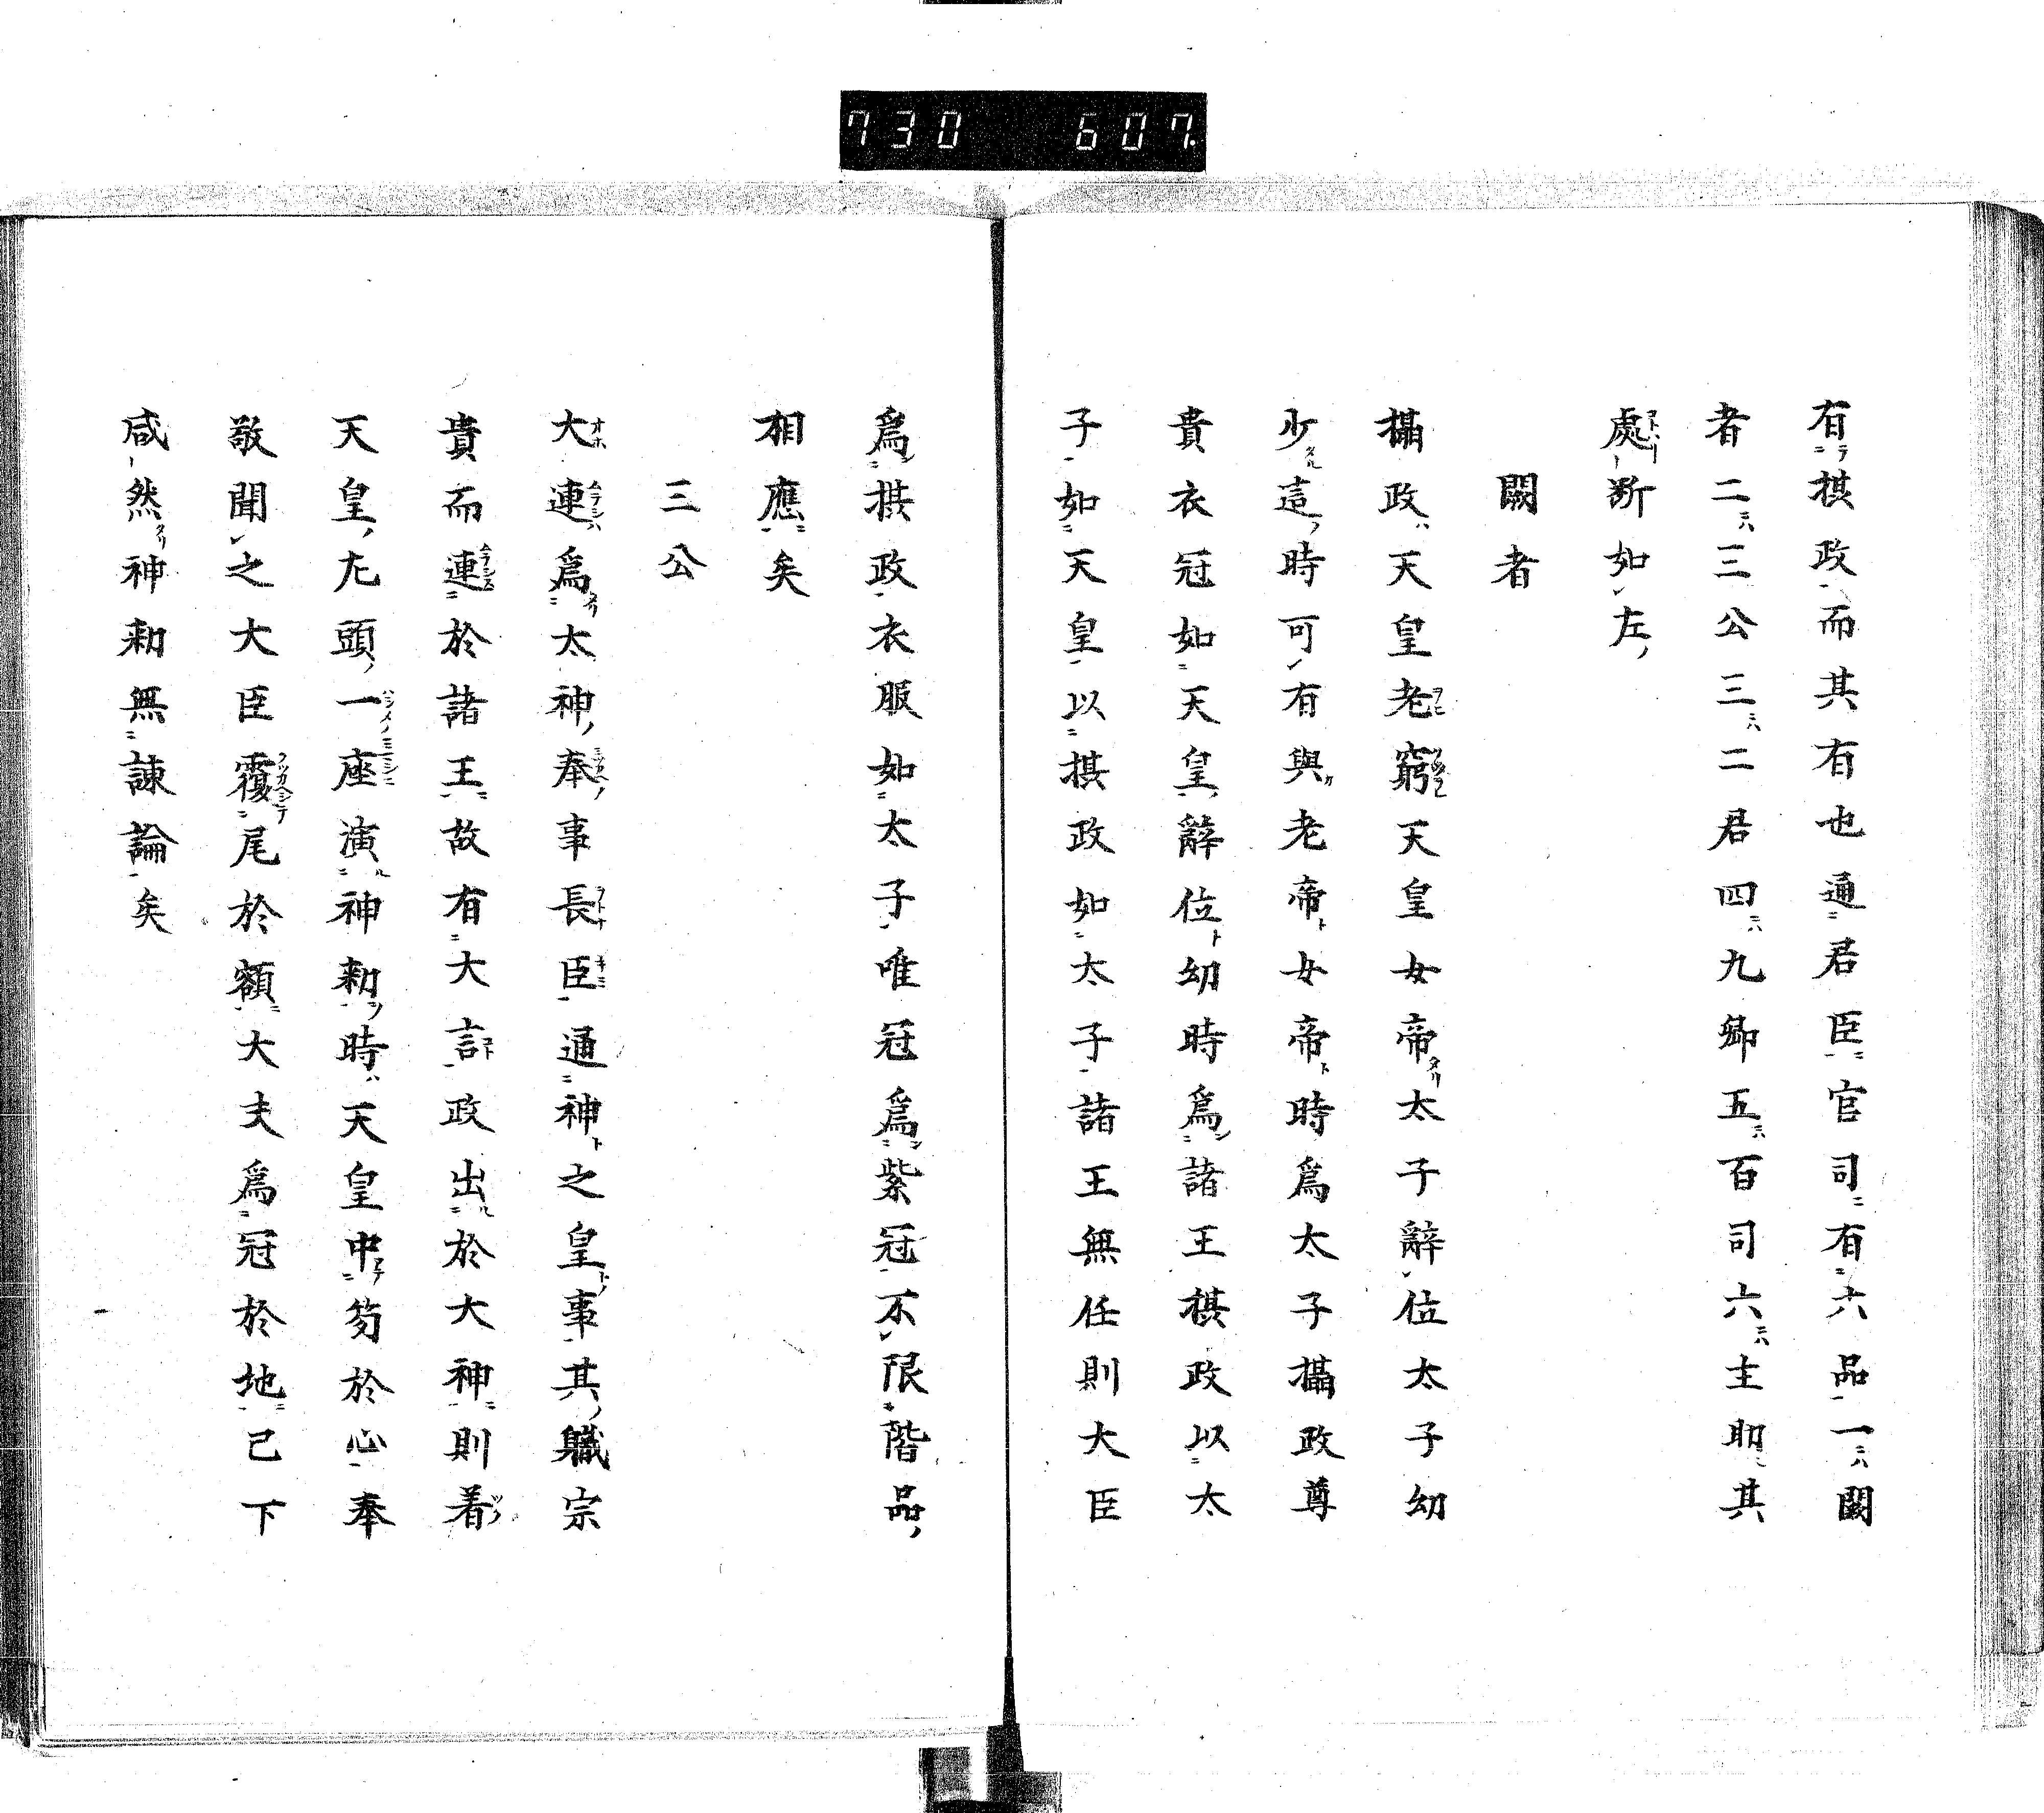 730 607.
有棋政而其有也通君臣官司有六品一闕
者二三公三二君四九卿五百司六主助其
處断如左
闕者
攝政天皇老窮天皇女帝太子辭位太子幼
少這時可有與老帝女帝時爲太子攝政尊
貴衣冠如天皇辭位幼時爲諸王棋政以太
子如天皇以棋政如太子諸王無任則大臣
爲棋政衣服如太子唯冠爲紫冠不限階品
相應矣
三公
大連爲太神奉事長臣通神之皇事其職宗
貴而連於諸王故有大言政出於大神則着
天皇尢頭一座演神勅時天皇中笏於心奉
敬聞之大臣覆尾於額大夫爲冠於地已下
咸然神勅無諫論矣